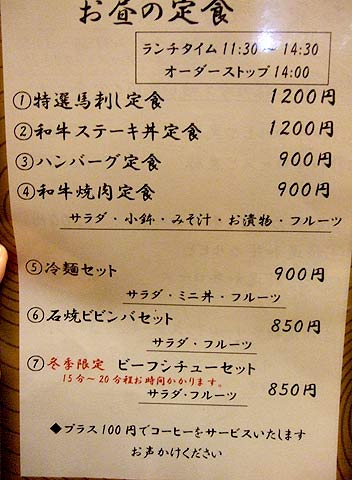 お昼の定食
ランチタイム 11:30〜14:30
オーダーストップ 14:00
①特選馬刺し定食 1200円
②和牛ステーキ丼定食 1200円
③ハンバーグ定食 900円
④和牛焼肉定食 900円
サラダ・小鉢・みそ汁・お漬物・フルーツ
⑤冷麺セット 900円
サラダ・ミニ丼・フルーツ
⑥石焼ビビンバセット 850円
サラダ・フルーツ
⑦冬季限定 ビーフシチューセット
15分〜20分程お時間かかります。 850円
サラダ・フルーツ
◆プラス100円でコーヒーをサービスいたします
お声かけください